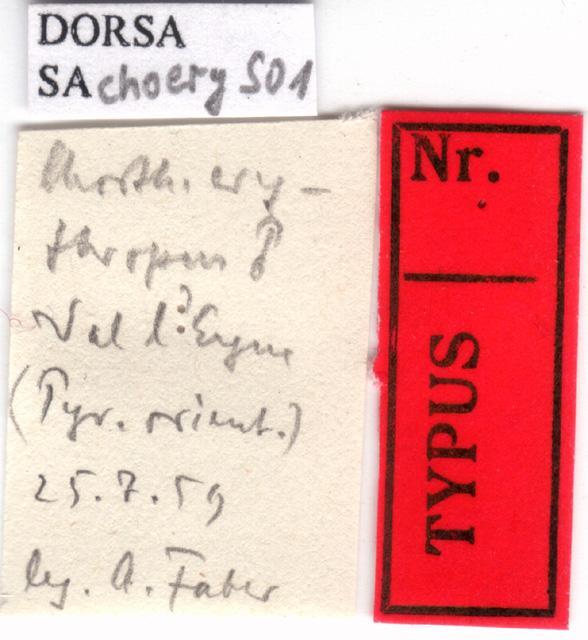 DORSA
SAchoeryS01
Chorth. ery-
thropus
Val d'Eyne
(Pyr. orient.)
25.7.59
leg. A. Faber
Nr.
TYPUS